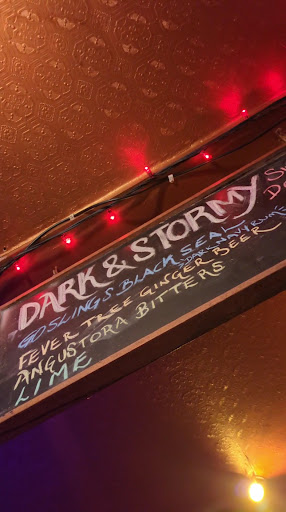 DARK & STORMY
GOSLINGS BLACK SEAL "DARK NAVY RUM"
FEVER TREE GINGER BEER
ANGUSTORA BITTERS
LIME